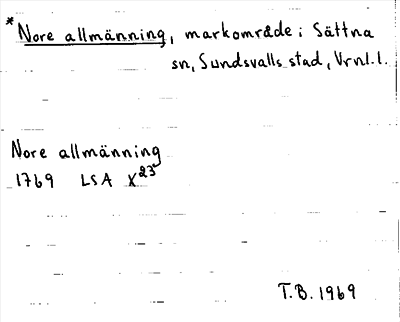 *Nore allmänning, markområde i Sättna
sn, Sundsvalls stad, Vrnl.l.
Nore allmänning
1769 LSA X23
T.B. 1969